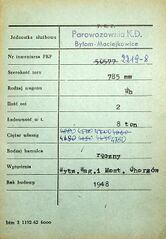 P. K. P.
Jednostka służbowa Parowozownia K.D.
Bytom-Maciejkowice
Nr inwentarza PKP 50577 2219-8
Szerokość toru 785 mm
Rodzaj wagonu Wh
Ilość osi 2
Ładowność w t. 8 ton
Ciężar własny 4280
Rodzaj hamulca ręczny
Wytwórnia Wytw. Wag. i Most. Chorzów
Rok budowy 1948